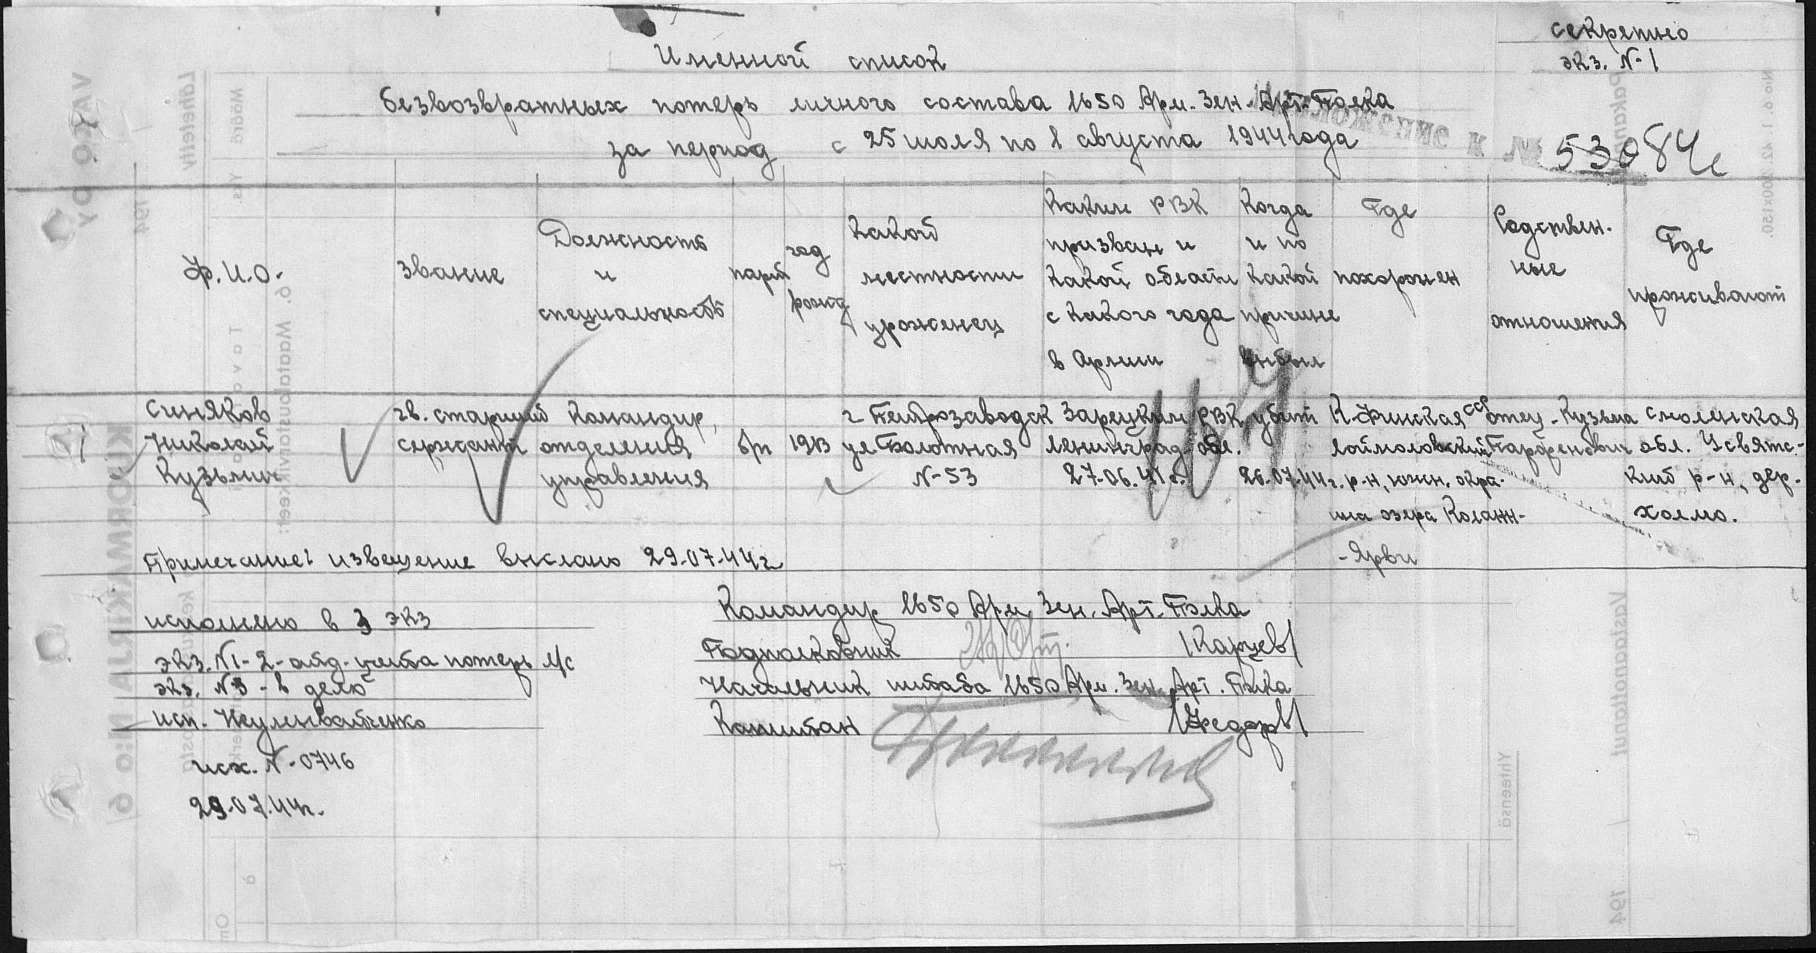 секретно
экз. N-1
Именной список
безвозвратных потерь личного состава 1650 Арм. Зен. Арт. Полка
за период с 25 июля по 1 августа 1944 года
Приложение к № 53084с
Ф.И.О.
звание
Должность
и
специальность
парт
год
рожд
какой
местности
уроженец
Каким РВК
призван и
какой области
с какого года
в Армии
Когда
и по
какой
причине
выбыл
Где
похоронен
Родствен-
ные
отношения
Где
проживают
1
Синяков
Николай
Кузьмич
гв. старший
сержант
командир
отделения
управления
б/п
1913
г. Петрозаводск
ул Болотная
N-53
Зарецким РВК
Ленинград. обл.
27.06.41г.
убит
26.07.44г.
К-Финская ССР
Лоймоловский
р-н, южн. окра-
ина озера Коланн-
-Ярви
отец - Кузьма
Парфенович
Смоленская
обл. Усвятс-
кий р-н, дер.
Холмо.
Примечание: извещение выслано 29.07.44г
исполнено в 3 экз
экз. N1-2-отд. учета потерь л/с
экз. N3 - в дело
исп.
исх. N-0746
29.07.44г.
Командир 1650 Арм. Зен. Арт. Полка
Подполковник /Карцев/
Начальник штаба 1650 Арм. Зен. Арт. Полка
Капитан /Федоров/
VARO OY
Lähetetty
194
Määrä
Yks
Tava
6. Maataloustarvikkeet
KUORMAKIRJA N:o 6
Vastaanottanut
Yhteensä
194